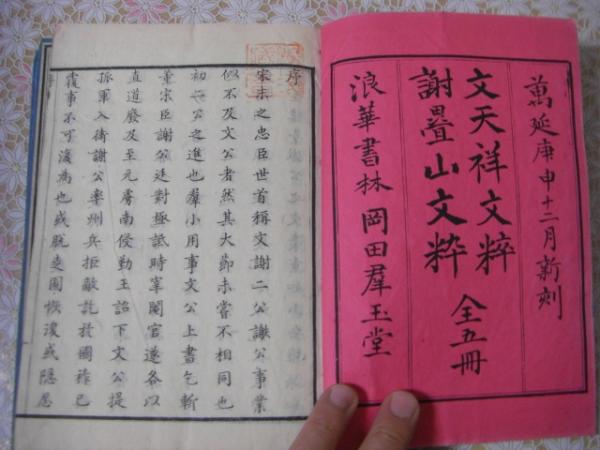 萬延庚申十二月新刻
文天祥文粹
謝疊山文粹
全五冊
浪華書林 岡田羣玉堂
序
宋末之忠臣世首稱文謝二公謙公事業
似不及文公者然其大節未嘗不相同也
初二公之進也羣小用事文公上書乞斬
董宋臣謝公廷對極詆時宰閹官遂各以
直道廢及至元虜南侵勤王詔下文公提
孤軍入衛謝公率州兵拒敵訖於國祚已
覆事不可復為也或脫走圖恢復或隱忍